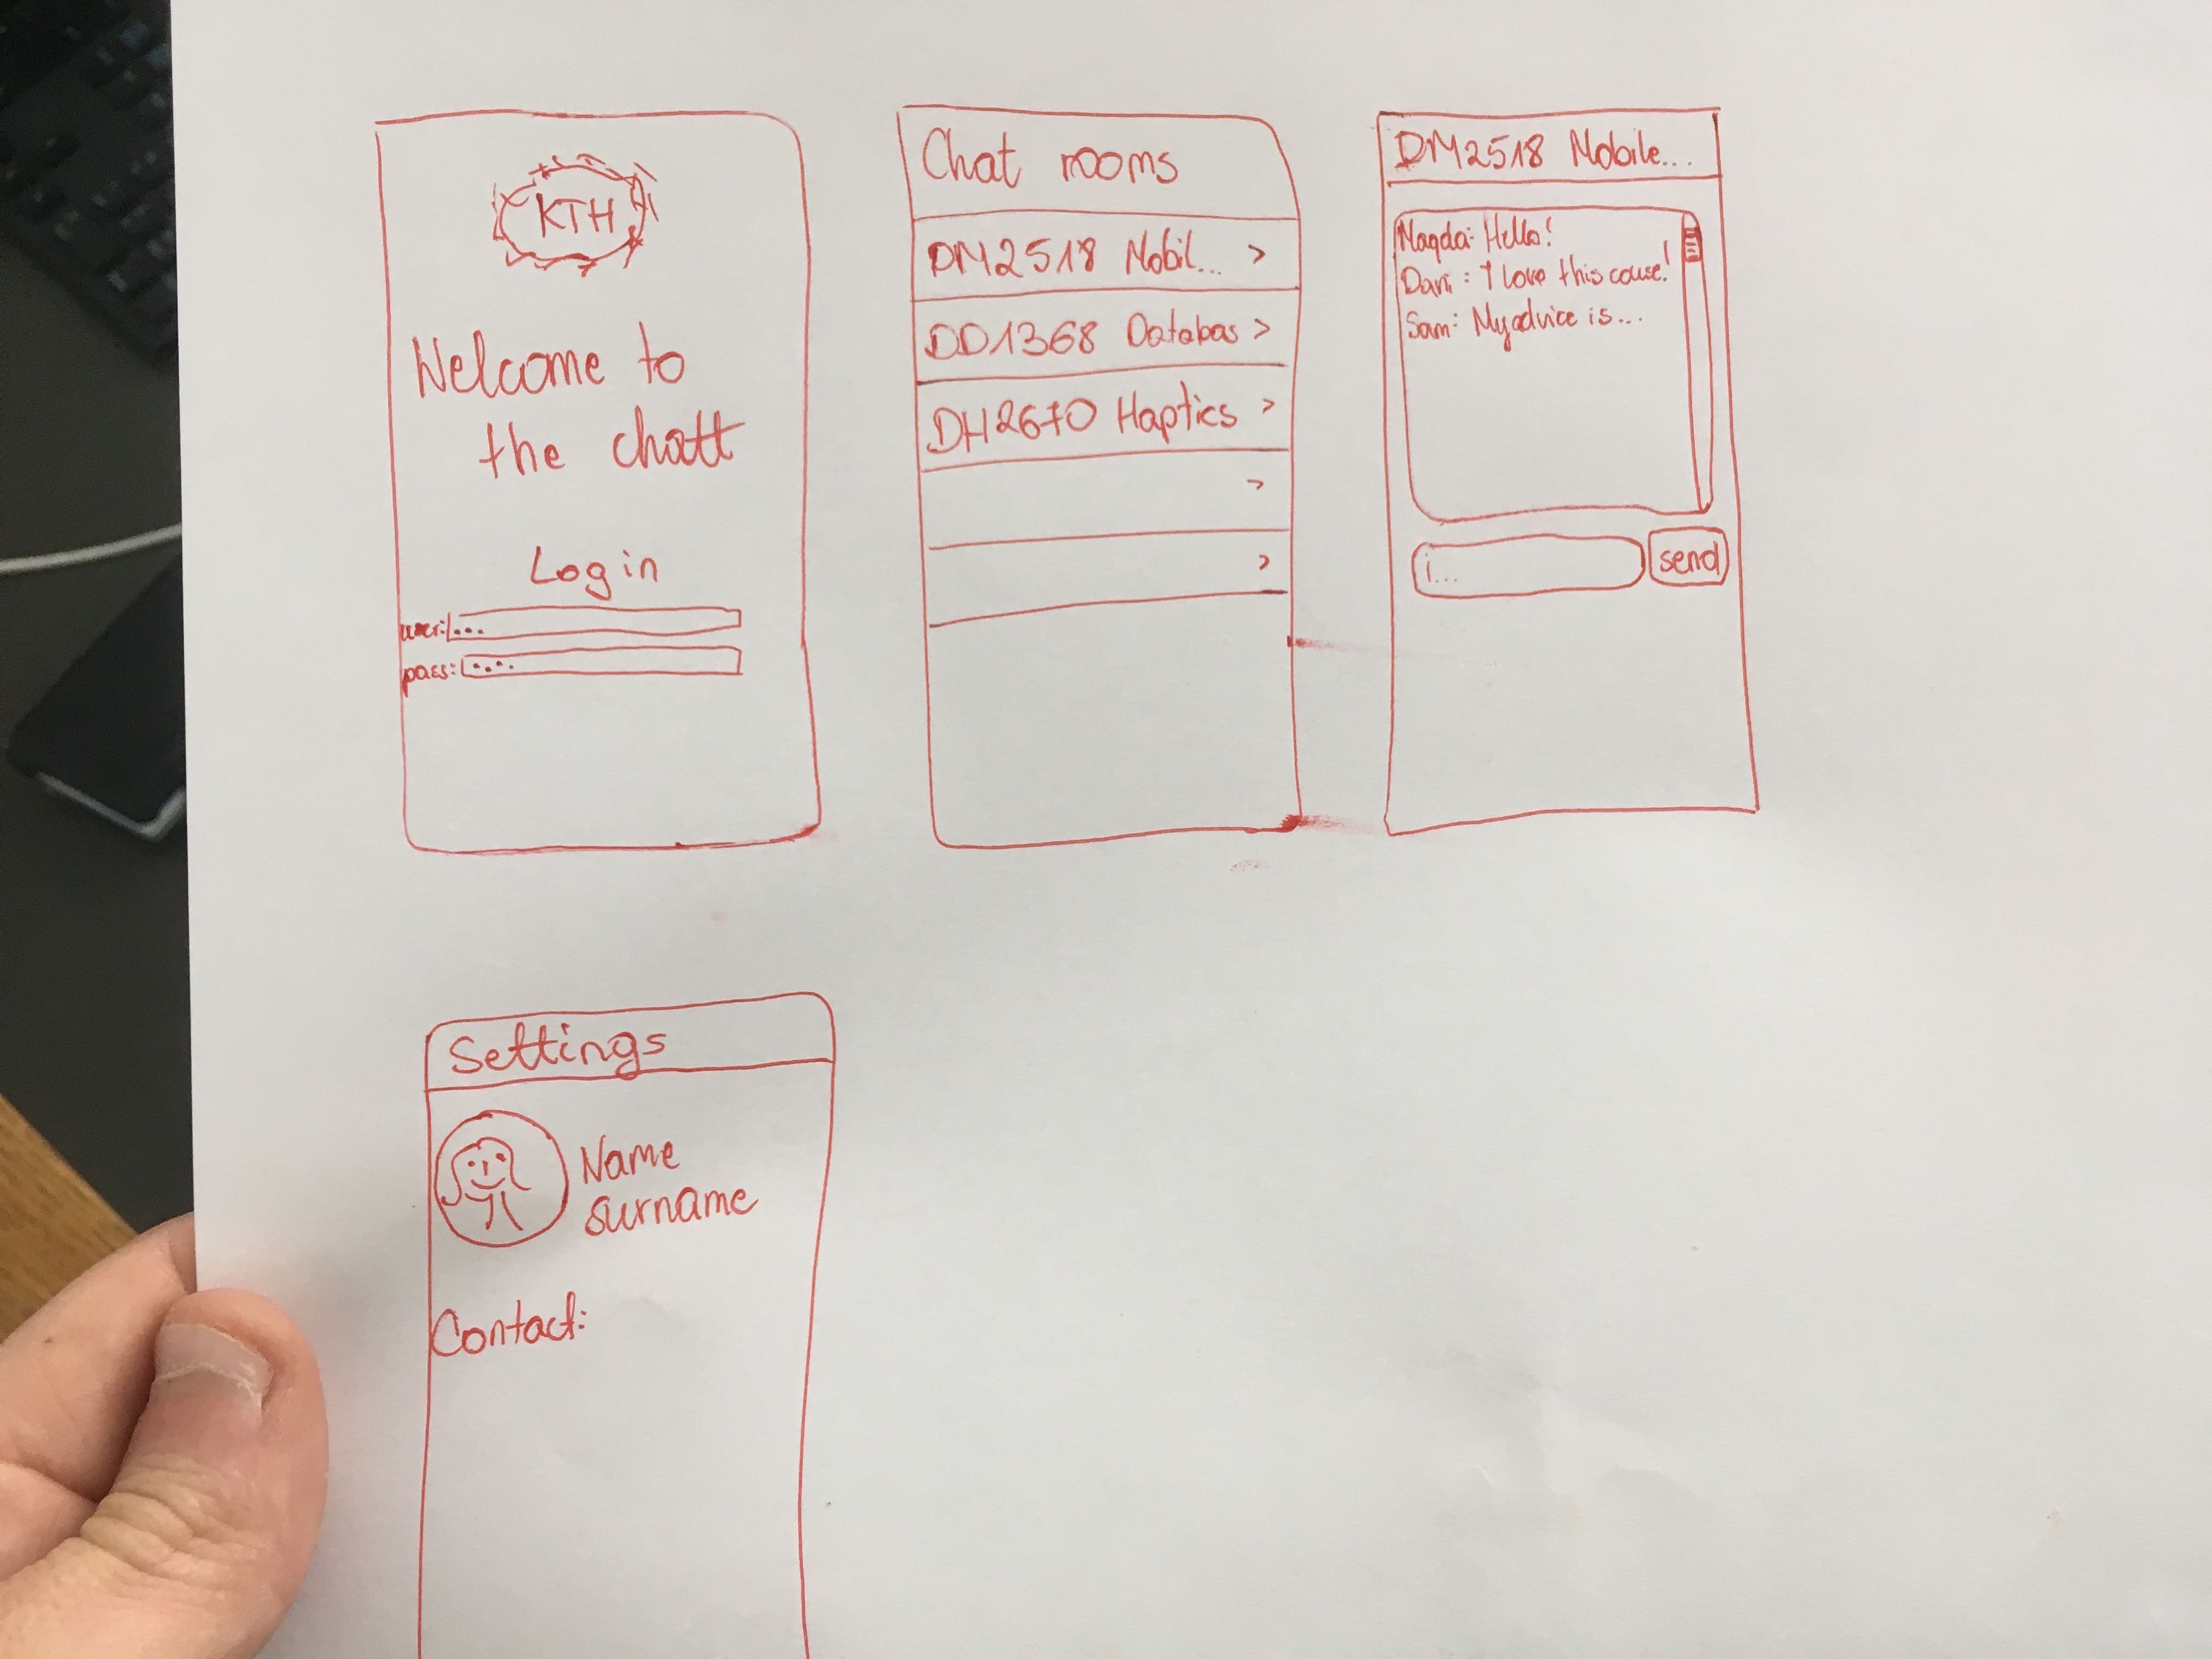 KTH
Welcome to
the chatt
Log in
user: ...
pass: ....
Chat rooms
DM2518 Mobil... >
DD1368 Databas >
DH2670 Haptics >
>
>
DM2518 Mobile...
Magda: Hello!
Dani: I love this couse!
Sam: My advice is...
i...
send
Settings
Name
surname
Contact: